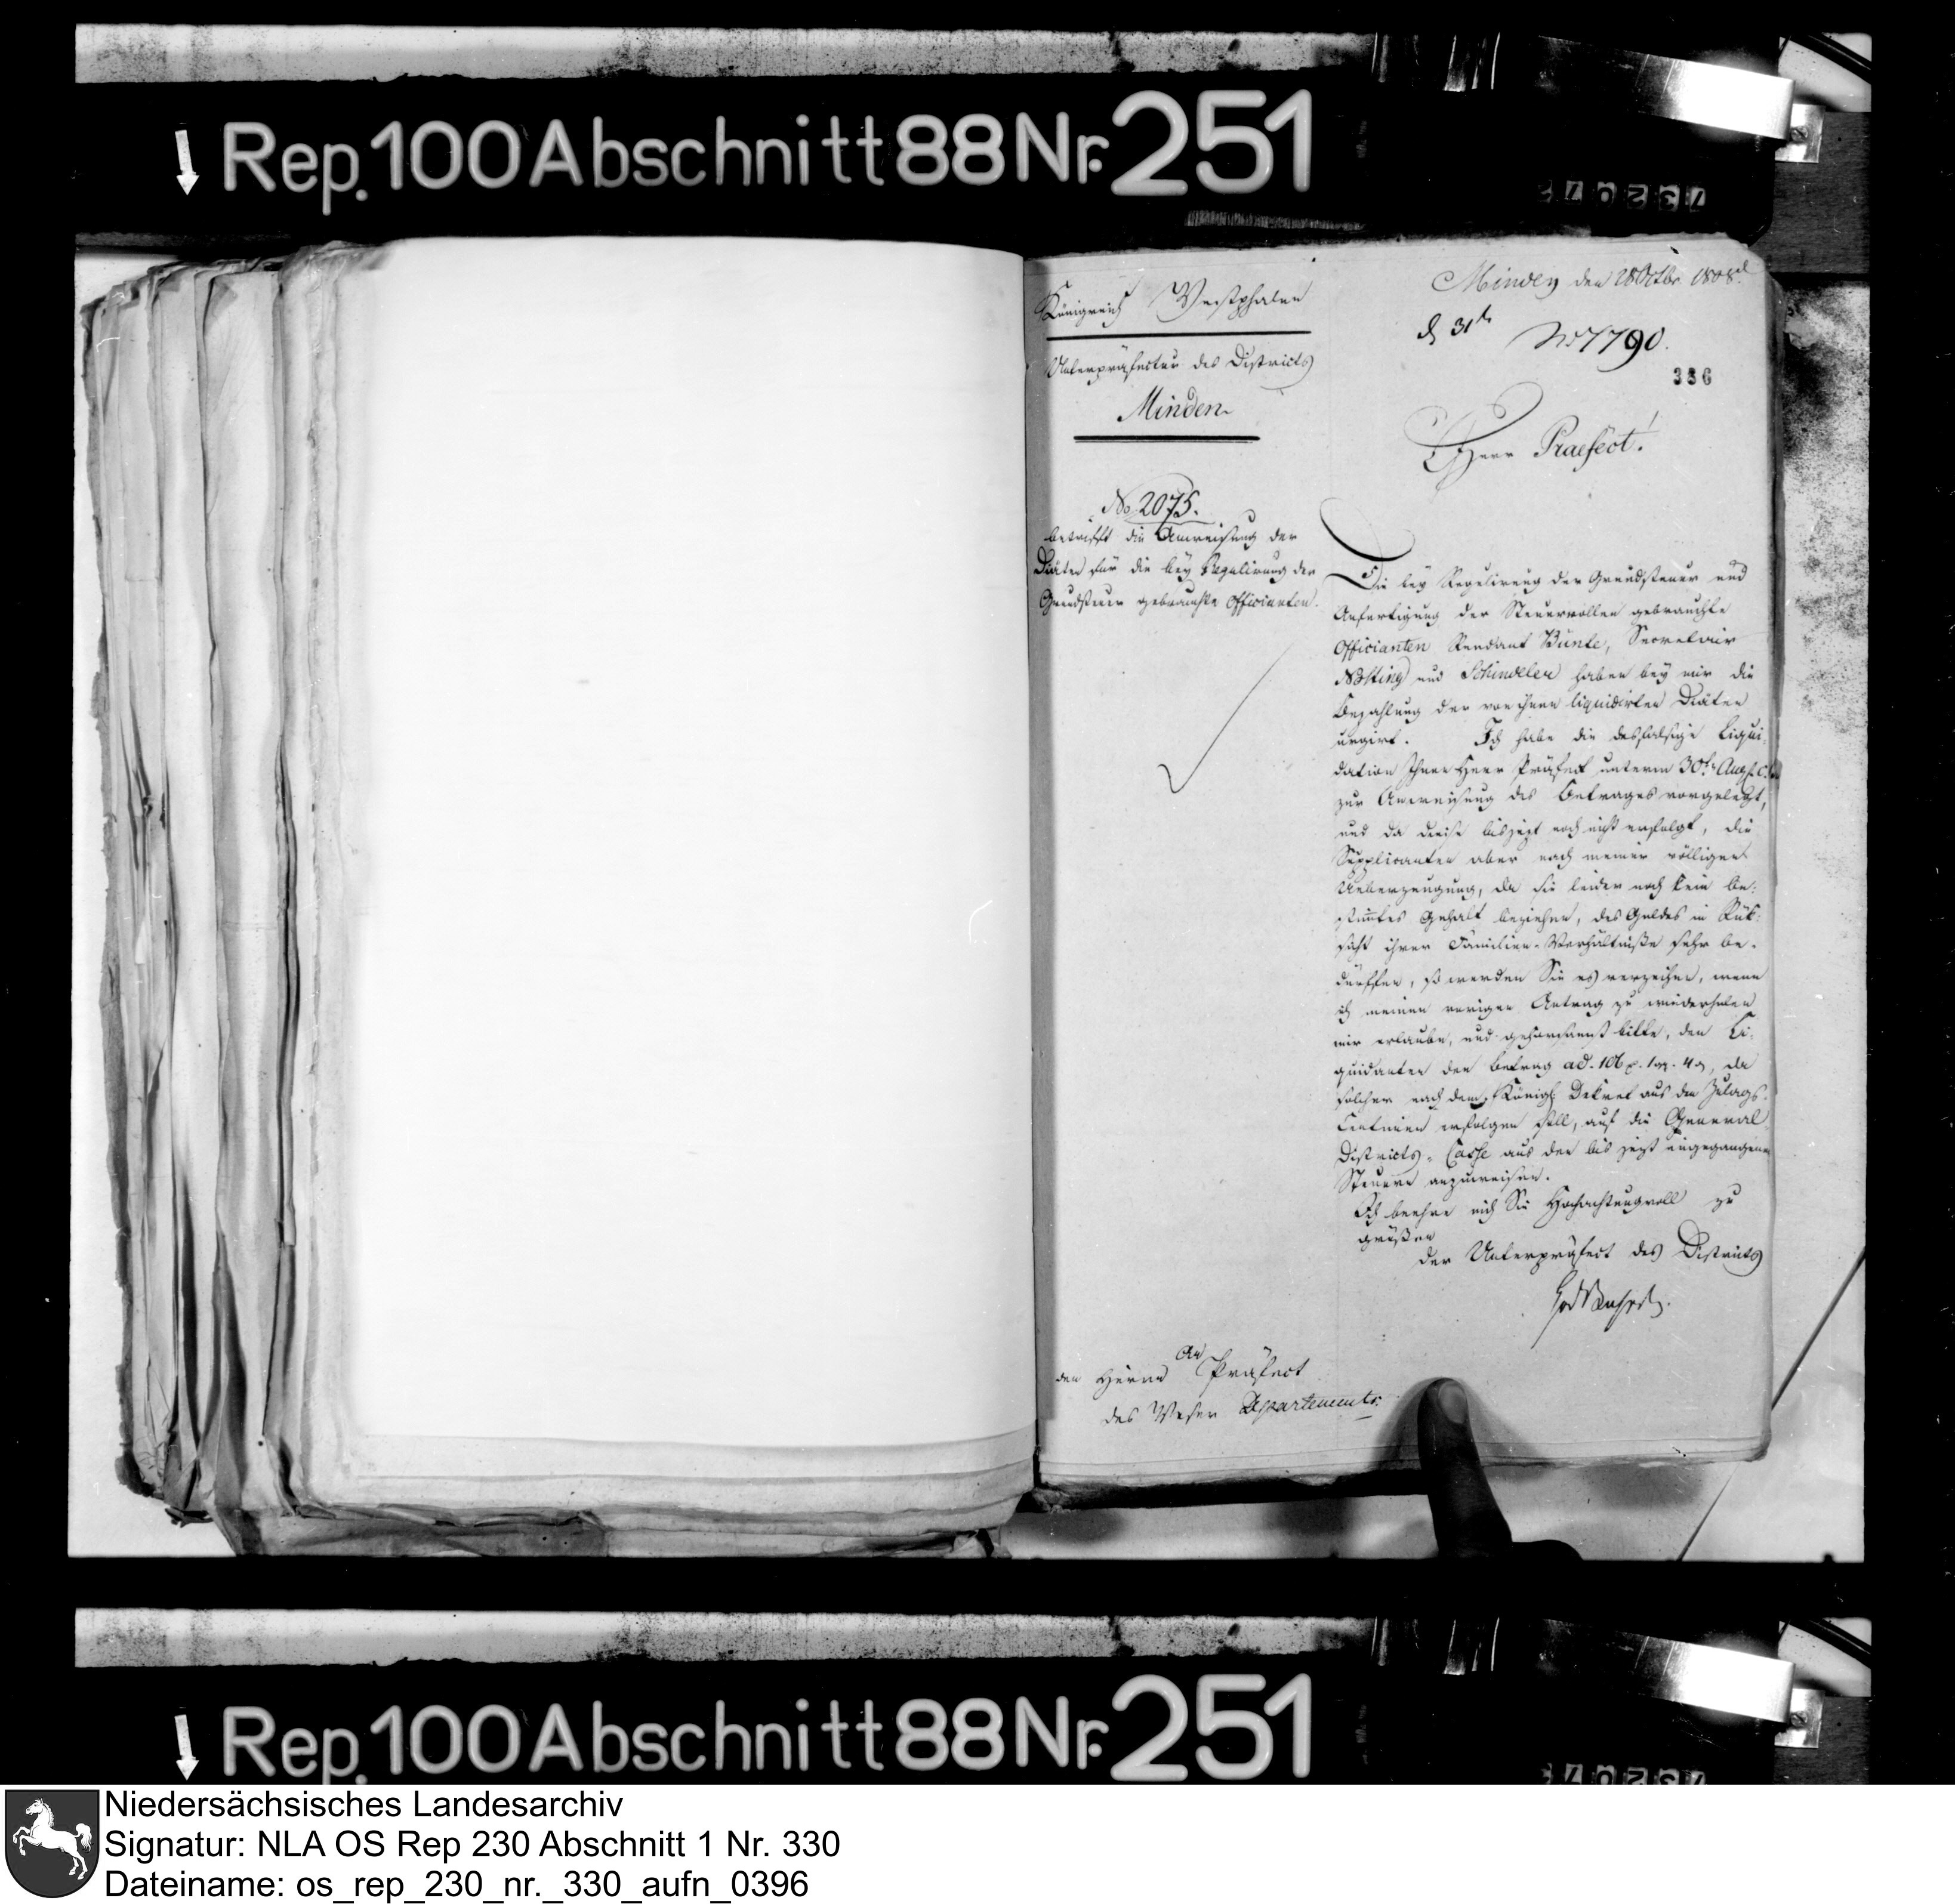 Rep. 100 Abschnitt 88 Nr. 251
Königreich Westphalen
Unterpräfectur des Districts
Minden
No 2075.
betrifft die Anweisung der
Diäten für die bey Regulirung der
Grundsteuer gebrauchte Officianten.
Minden den 28 Octbr. 1808.
d 31t
No 7790.
336
Herr Praefect!
Die bey Regulirung der Grundsteuer und
Anfertigung der Steuerrollen gebrauchte
Officianten Rendant Bünte, Secretair
Nölting und Schindeler haben bey mir die
Bezahlung der von ihnen liquidirten Diäten
urgirt. Ich habe die desfalsige Liqui-
dation Ihnen Herr Präfect unterm 30t Augst c.
zur Anweisung des Betrages vorgelegt,
und da diese bis jezt noch nicht erfolgt, die
Supplicanten aber nach meiner völligen
Ueberzeugung, da sie leider noch kein be-
stimtes Gehalt beziehen, des Geldes in Rük-
sicht ihrer Familien-Verhältniße sehr be-
dürffen, so werden Sie es verzeihen, wenn
ich meinen vorigen Antrag zu wiederholen
mir erlaube, und gehorsamst bitte, den Li-
quidanten den Betrag ad. 106 1 4 da
solcher nach dem Königl Dekret aus den Zulags-
Centimen erfolgen soll, auf die General
Districts-Casse aus den bis jezt eingegangenen
Steuern anzuweisen.
Ich beehre mich Sie Hochachtungvoll zu
grüßen
der Unterpräfect des Districts
An
den Herrn Präfect
des Weser Departements.
Rep. 100 Abschnitt 88 Nr. 251
Niedersächsisches Landesarchiv
Signatur: NLA OS Rep 230 Abschnitt 1 Nr. 330
Dateiname: os_rep_230_nr._330_aufn_0396